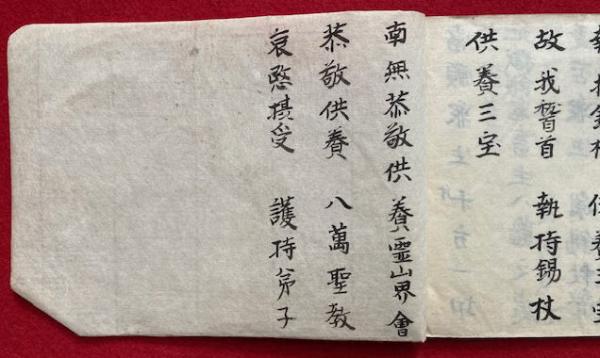 故我稽首 執持錫杖
供養三宝
南無恭敬供養霊山界會
恭敬供養 八萬聖教
哀愍摂受 護持弟子